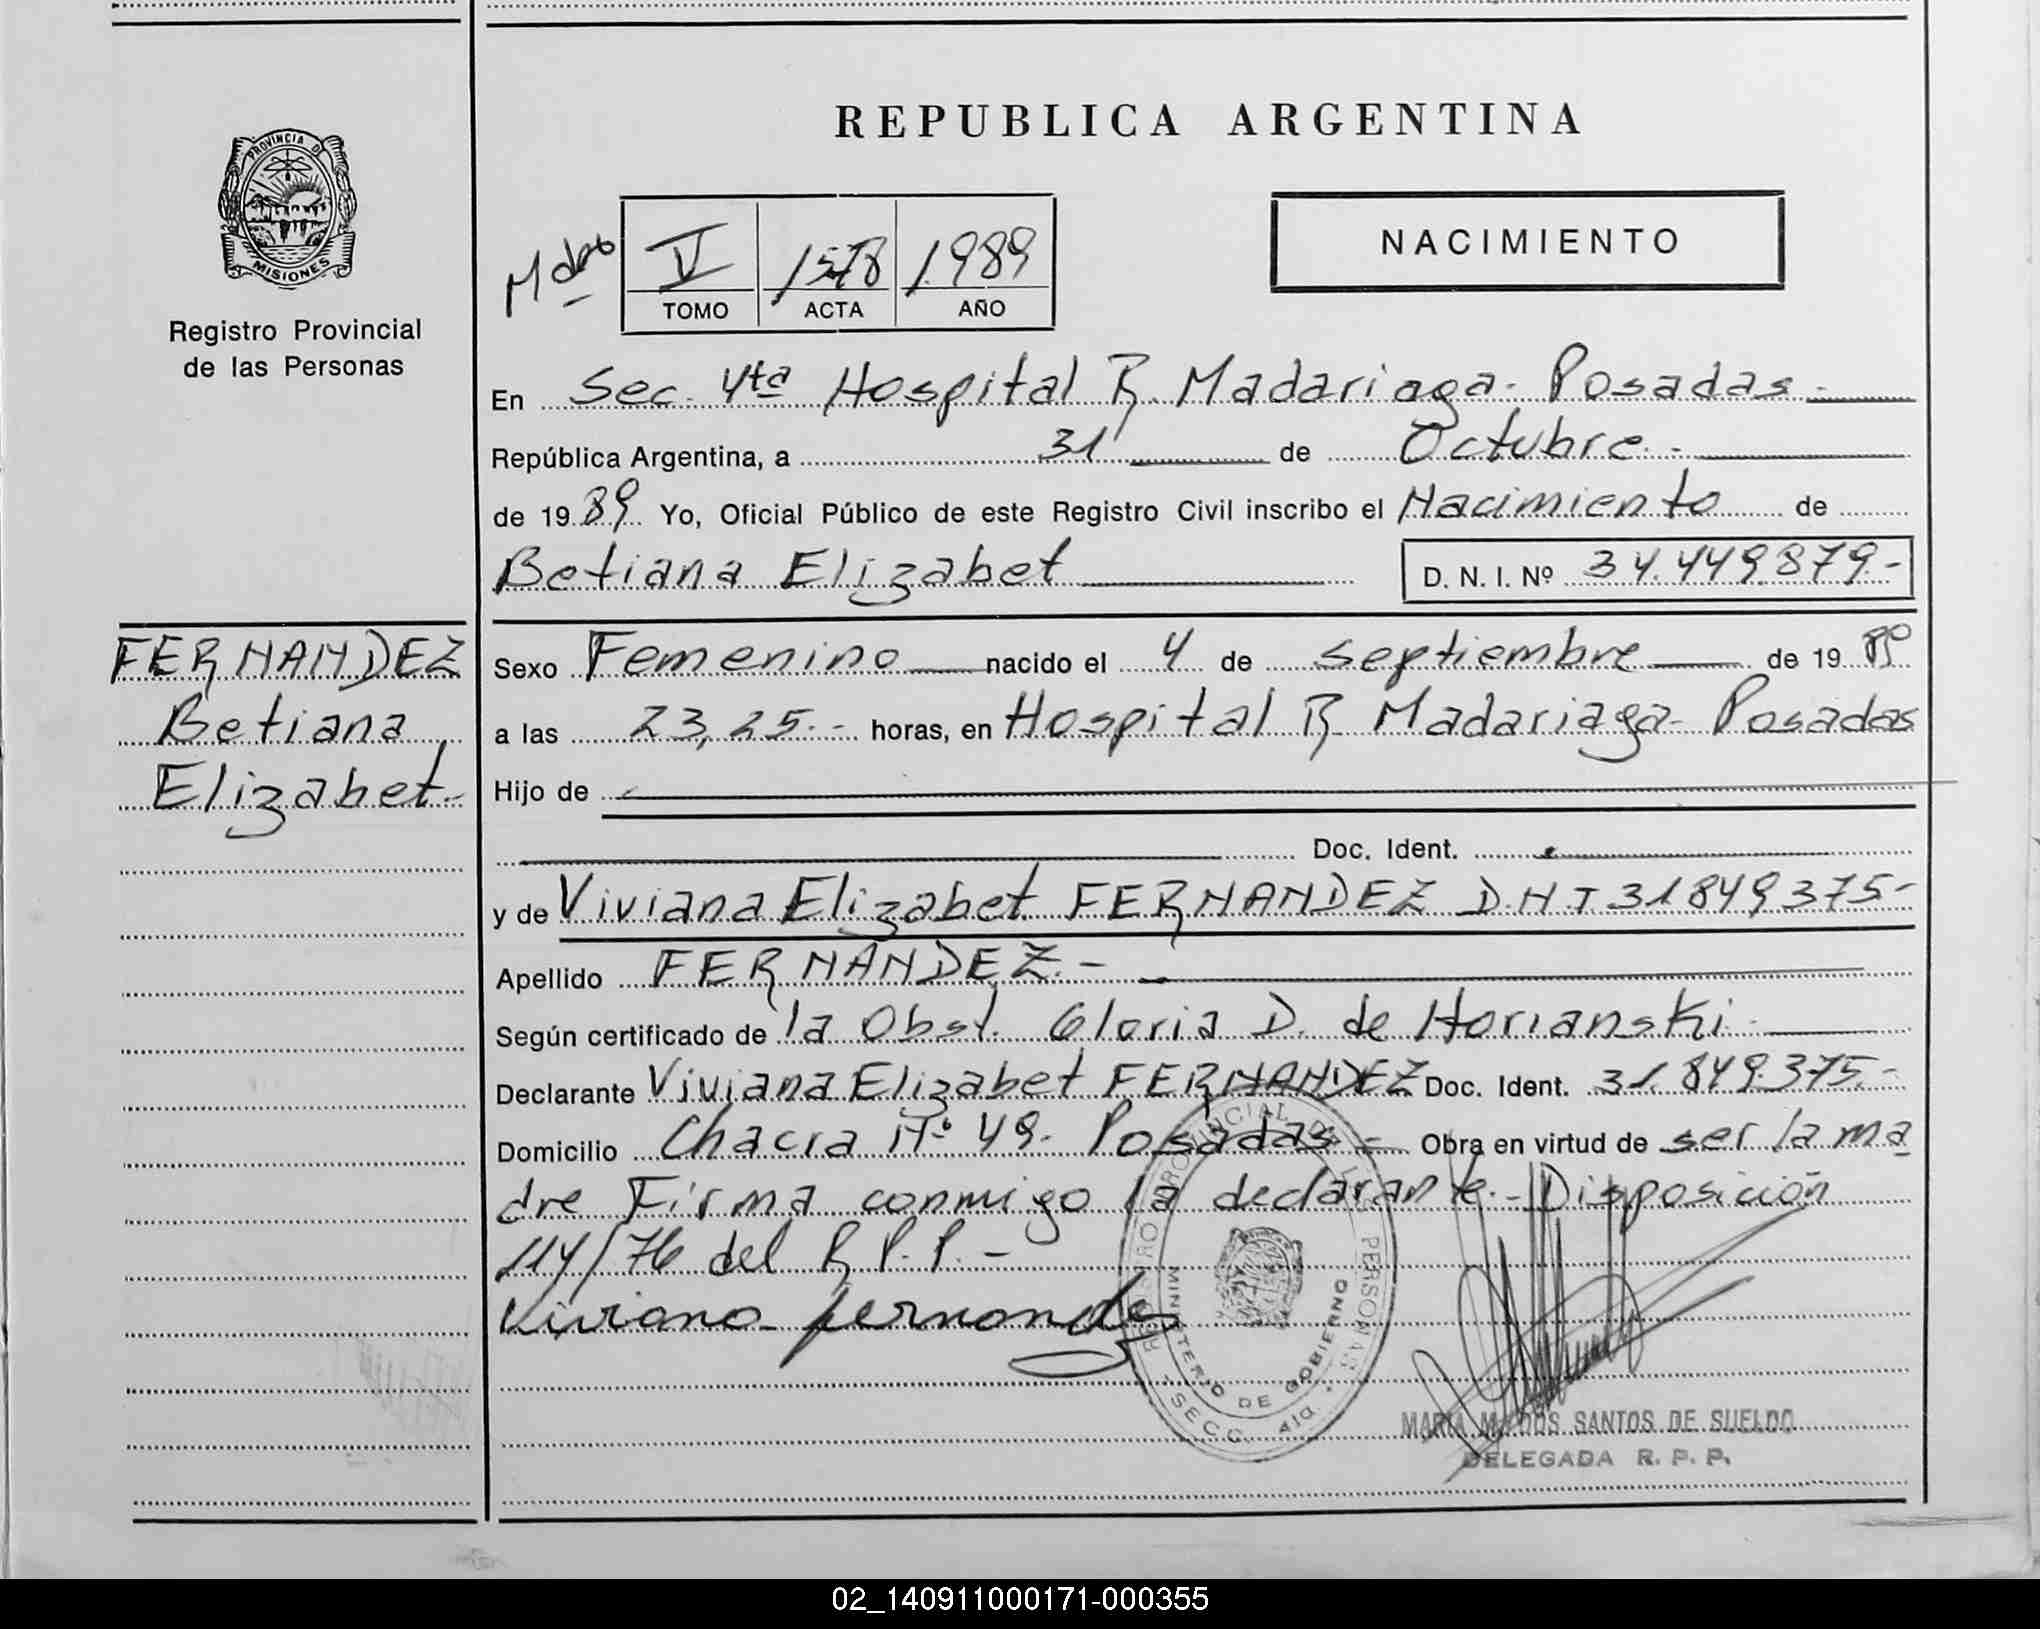 REPUBLICA ARGENTINA
PROVINCIA DE
MISIONES
Registro Provincial
de las Personas
V 1578 1989
TOMO ACTA AÑO
NACIMIENTO
En Sec. 4ta Hospital R. Madariaga - Posadas.-
República Argentina, a 31 de Octubre.-
de 1989 Yo, Oficial Público de este Registro Civil inscribo el Nacimiento de
Betiana Elizabet D. N. I. Nº 34.449.879.-
FERNANDEZ
Betiana
Elizabet.-
Sexo Femenino nacido el 4 de septiembre de 1989
a las 23,25.- horas, en Hospital R. Madariaga - Posadas
Hijo de
Doc. Ident.
y de Viviana Elizabet FERNANDEZ D.N.I. 31849375-
Apellido FERNANDEZ.-
Según certificado de la Obst. Gloria D. de Horianski.-
Declarante Viviana Elizabet FERNANDEZ Doc. Ident. 31.849375.-
Domicilio Chacra Nº 49. Posadas.- Obra en virtud de ser la ma
dre Firma conmigo la declarante.- Disposición
114/76 del R.P.P.-
Viviana fernandez
REGISTRO PROVINCIAL DE LAS PERSONAS
MINISTERIO DE GOBIERNO
SECC. 4ta.
MARIA M. DOS SANTOS DE SUELDO
DELEGADA R. P. P.
02_140911000171-000355